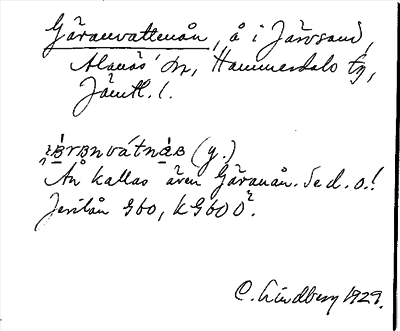 Gäranvattenån, å i Järvsand,
Alanäs sn, Hammerdals tg,
Jämtl. l.
(y.)
Ån kallas även Gäranån. Se d. o.!
Jesilån G60, KG60
C. Lindberg 1929.